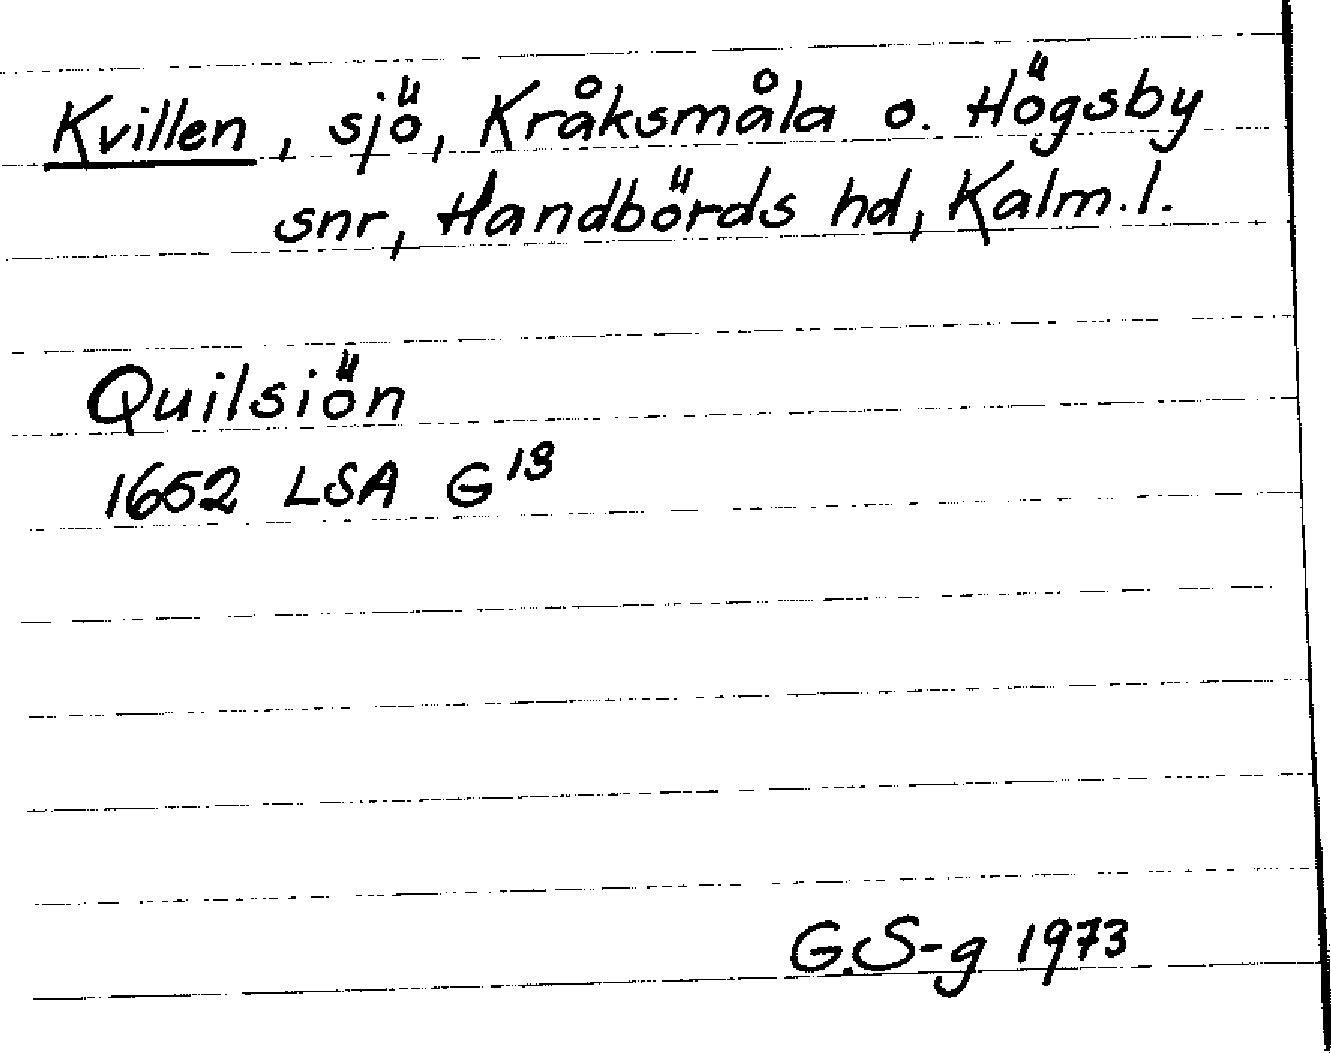 Kvillen, sjö, Kråksmåla o. Högsby
snr, Handbörds hd, Kalm.l.
Quilsiön
1652 LSA G¹³
G.S-g 1973